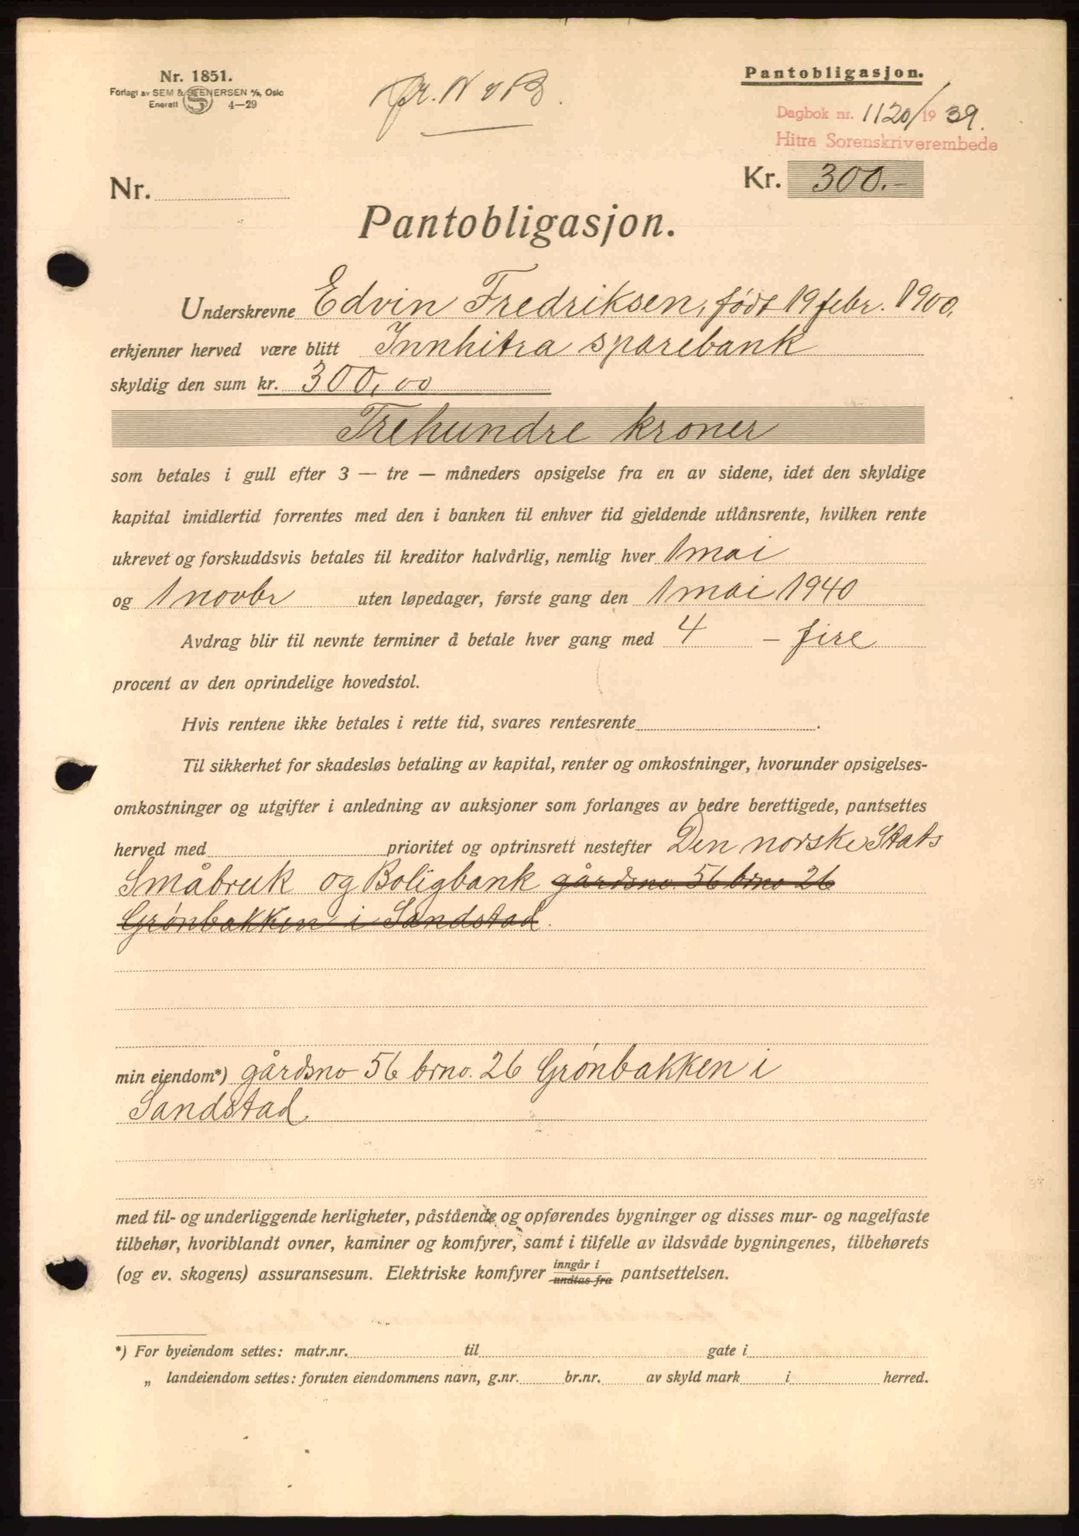 Nr. 1851.
Forlagt av SEM & STENERSEN A/S, Oslo
Enerett S 4—29
Pantobligasjon.
Dagbok nr. 1120/1939.
Hitra Sorenskriverembede
Nr.
Kr. 300.-
Pantobligasjon.
Underskrevne Edvin Fredriksen, født 19 febr. 1900,
erkjenner herved være blitt Innhitra sparebank
skyldig den sum kr. 300,00
Trehundre kroner
som betales i gull efter 3 — tre — måneders opsigelse fra en av sidene, idet den skyldige
kapital imidlertid forrentes med den i banken til enhver tid gjeldende utlånsrente, hvilken rente
ukrevet og forskuddsvis betales til kreditor halvårlig, nemlig hver 1 mai
og 1 novbr uten løpedager, første gang den 1 mai 1940
Avdrag blir til nevnte terminer å betale hver gang med 4 – fire
procent av den oprindelige hovedstol.
Hvis rentene ikke betales i rette tid, svares rentesrente.
Til sikkerhet for skadesløs betaling av kapital, renter og omkostninger, hvorunder opsigelses-
omkostninger og utgifter i anledning av auksjoner som forlanges av bedre berettigede, pantsettes
herved med prioritet og optrinsrett nestefter Den norske Stats
Småbruk og Boligbank gårdsno 56 brno 26
Grønbakken i Sandstad.
min eiendom*) gårdsno 56 brno. 26 Grønbakken i
Sandstad
med til- og underliggende herligheter, påstående og opførendes bygninger og disses mur- og nagelfaste
tilbehør, hvoriblandt ovner, kaminer og komfyrer, samt i tilfelle av ildsvåde bygningenes, tilbehørets
(og ev. skogens) assuransesum. Elektriske komfyrer inngår i undtas fra pantsettelsen.
*) For byeiendom settes: matr.nr. til gate i
„ landeiendom settes: foruten eiendommens navn, g.nr. br.nr. av skyld mark i herred.